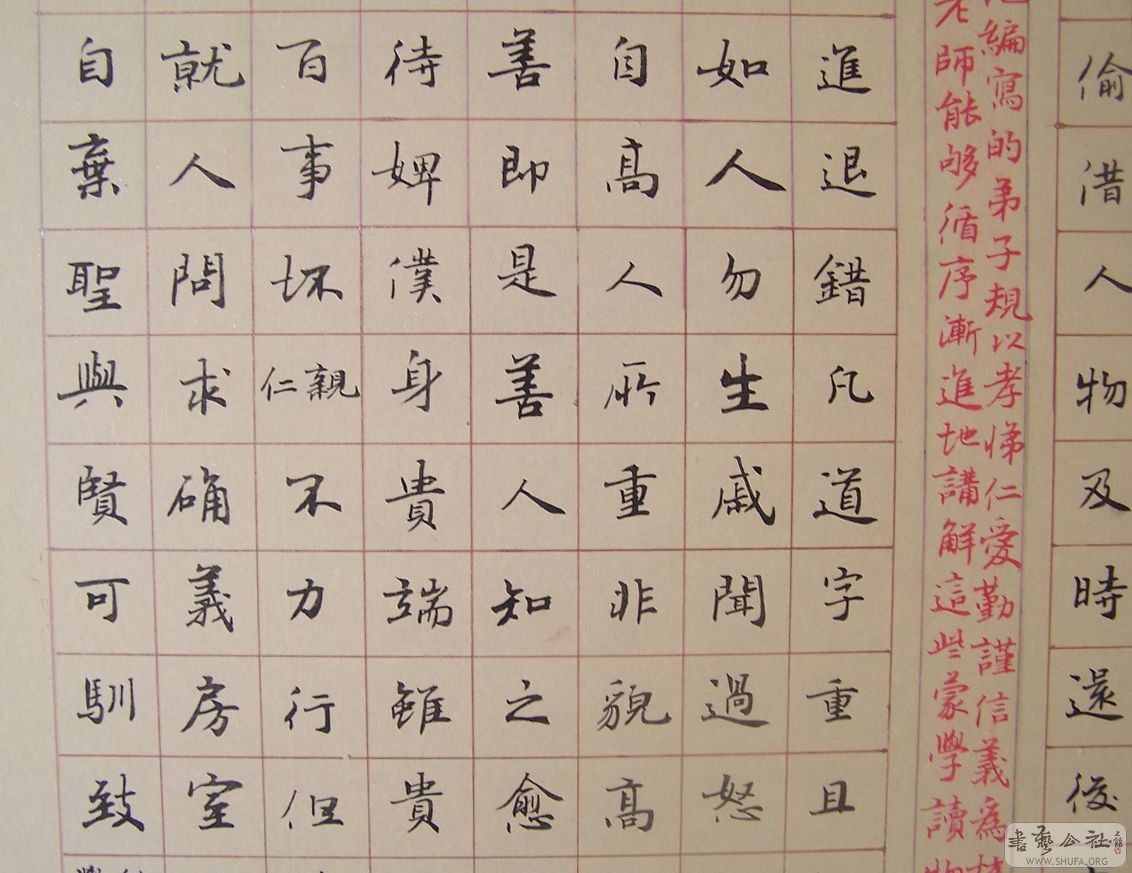 偷借人物及時還後
編寫的弟子規以孝悌仁愛勤謹信義為
老師能够循序漸進地講解這些蒙學讀物
進退錯凡道字重且
如人勿生戚聞過怒
自高人所重非貌高
善即是善人知之愈
待婢僕身貴端雖貴
百事坏仁親不力行但
就人問求确義房室
自棄聖與賢可馴致
書藝公社
WWW.SHUFA.ORG